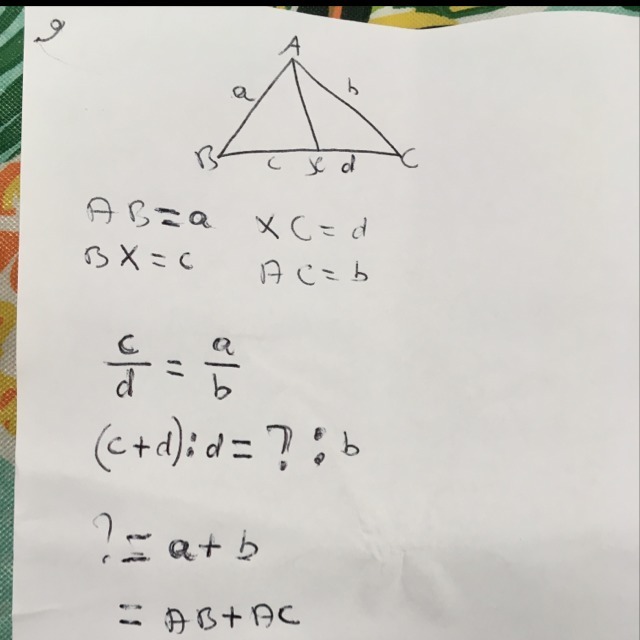 9
A
a b
B c x d C
AB = a XC = d
BX = c AC = b
c/d = a/b
(c+d):d = ? : b
? = a+b
= AB+AC